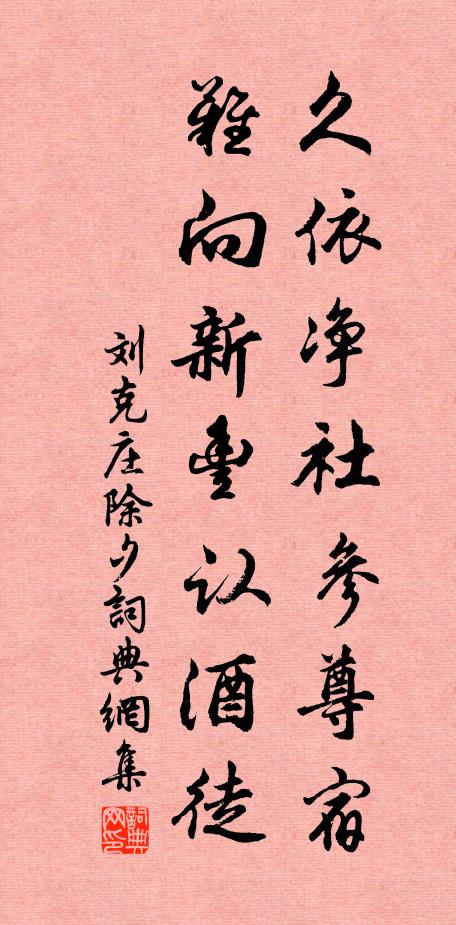 久依净社参尊宿
難向新豊认酒徒
刘克庄除夕詞典網集
詞典网印